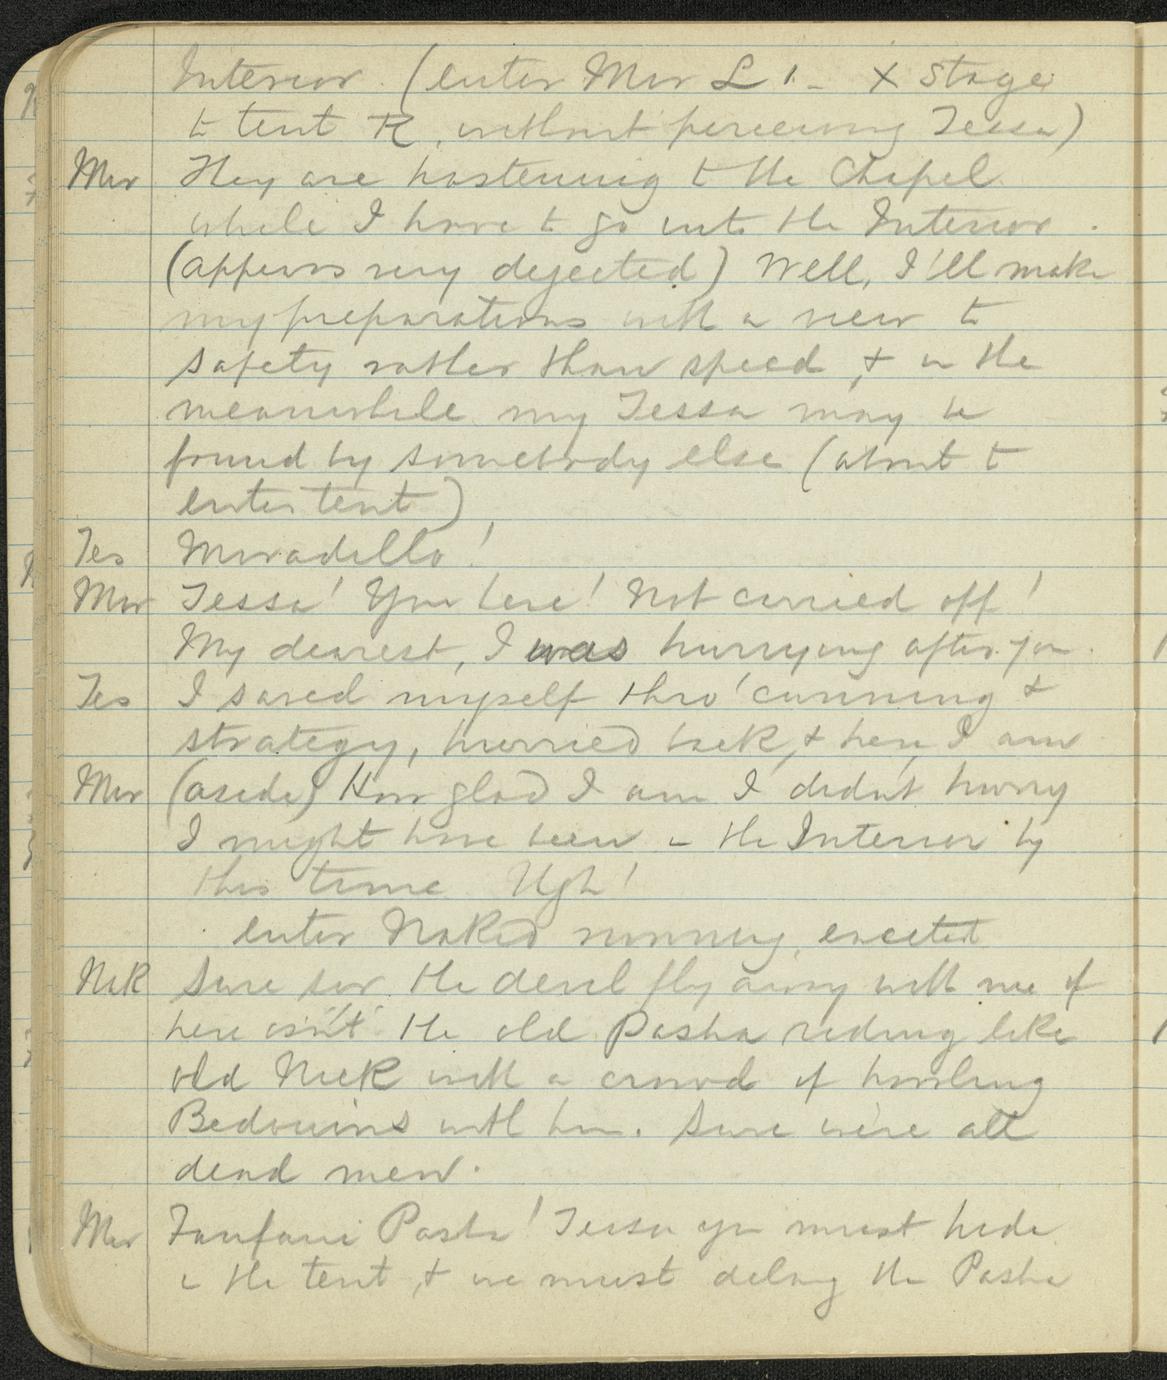 Interior. (enter Mir L 1 - X stage
to tent R, without perceiving Tessa)
Mir They are hastening to the Chapel
while I have to go into the Interior.
(appears very dejected) Well, I'll make
my preparations with a view to
safety rather than speed, & in the
meanwhile my Tessa may be
found by somebody else (about to
enter tent)
Tes Miradillo!
Mir Tessa! You here! Not carried off!
My dearest, I was hurrying after you.
Tes I saved myself thro' cunning &
strategy, hurried back, & here I am
Mir (aside) How glad I am I didn't hurry
I might have been in the Interior by
this time. Ugh!
enter Naked running, excited
Nak Sure sor the devil fly away with me if
here isn't the old Pasha riding like
old Nick with a crowd of howling
Bedouins with him. Sure we're all
dead men.
Mir Fanfani Pasha! Tessa you must hide
in the tent, & we must delay the Pasha